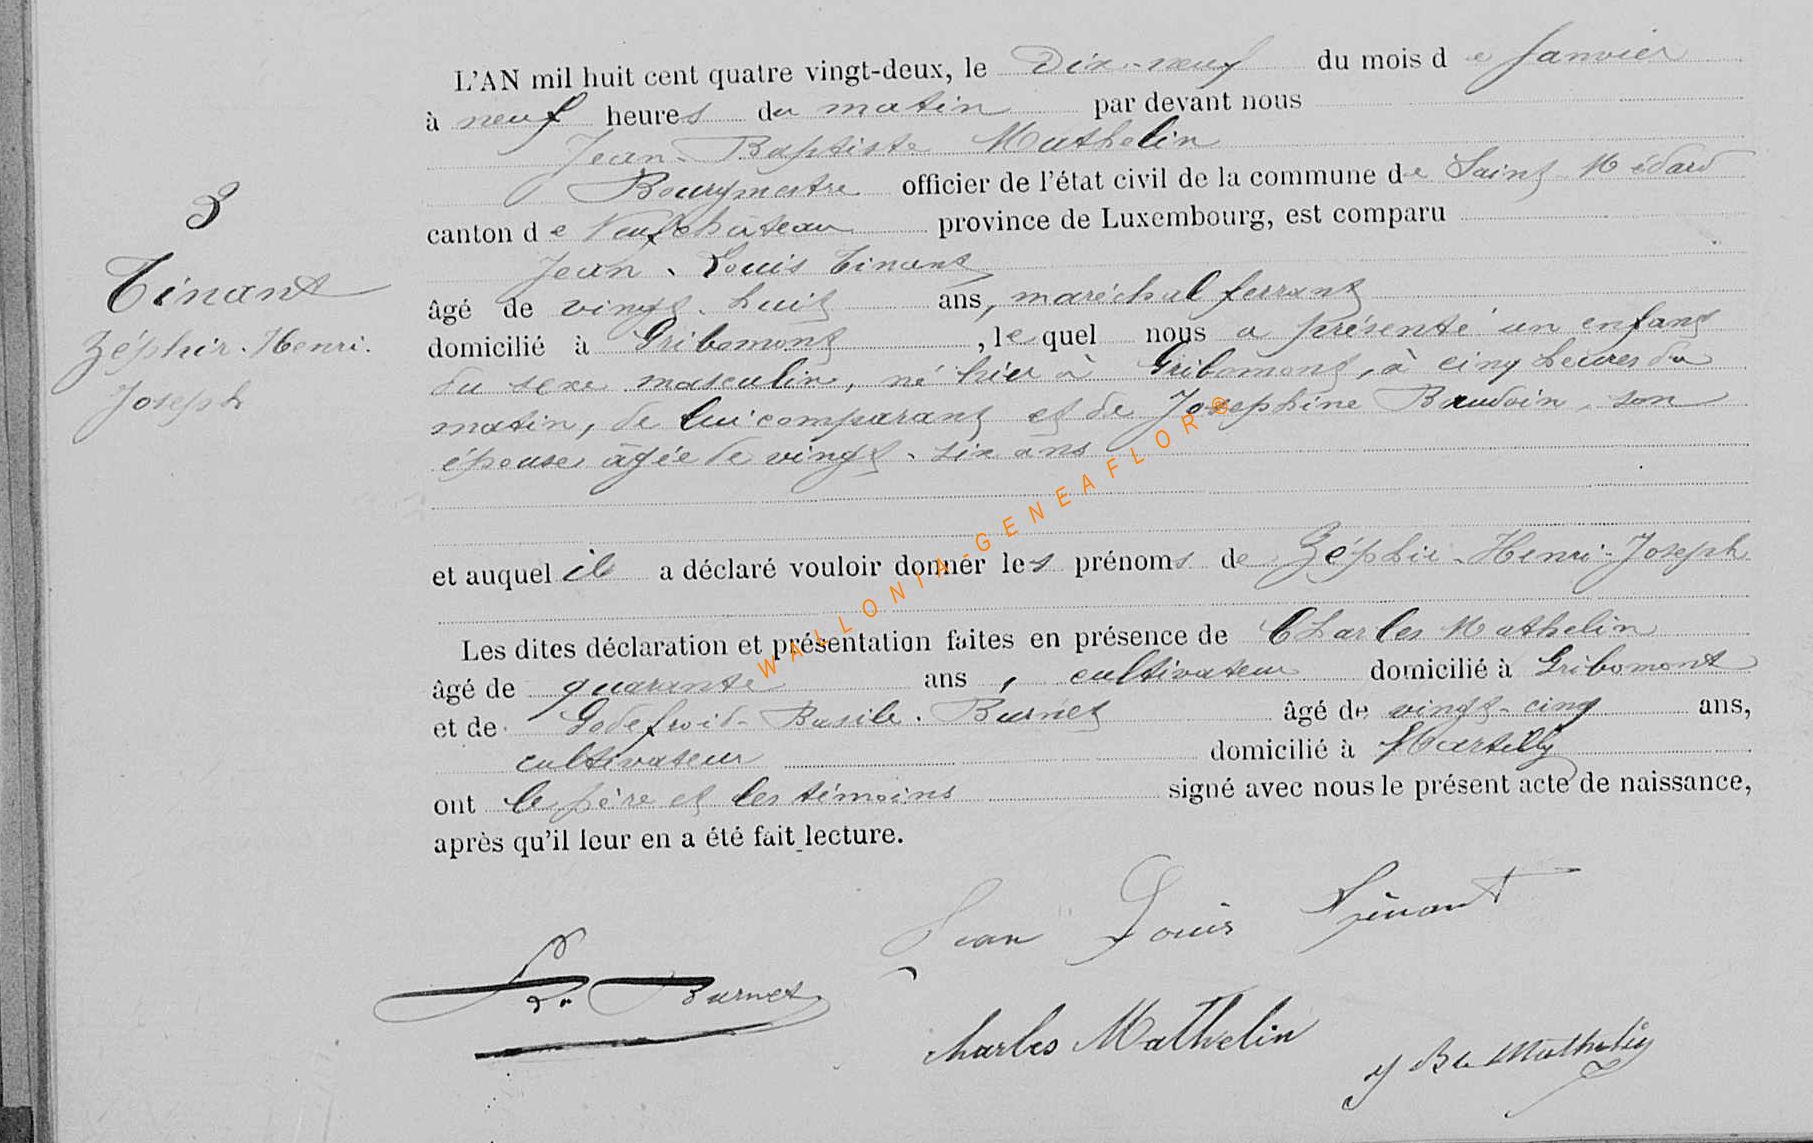 L'AN mil huit cent quatre vingt-deux, le Dix-neuf du mois de Janvier
à neuf heures du matin par devant nous
Jean-Baptiste Mathelin
Bourgmestre officier de l'état civil de la commune de Saint-Médard
canton de Neufchâteau province de Luxembourg, est comparu
Jean-Louis Tinant
âgé de vingt-huit ans, maréchal ferrant
domicilié à Gribomont, lequel nous a présenté un enfant
du sexe masculin, né hier à Gribomont, à cinq heures du
matin, de lui comparant et de Josephine Baudoin, son
épouse âgée de vingt-six ans
et auquel il a déclaré vouloir donner les prénoms de Zéphir-Henri-Joseph
Les dites déclaration et présentation faites en présence de Charles Mathelin
âgé de quarante ans, cultivateur domicilié à Gribomont
et de Godefroid-Basile Burnet âgé de vingt-cinq ans,
cultivateur domicilié à Martilly
ont le père et les témoins signé avec nous le présent acte de naissance,
après qu'il leur en a été fait lecture.
3
Tinant
Zéphir-Henri-
Joseph
Jean Louis Tinant
Burnet
Charles Mathelin
J Bte Mathelin
WALLONIA-GENEAFLOR®